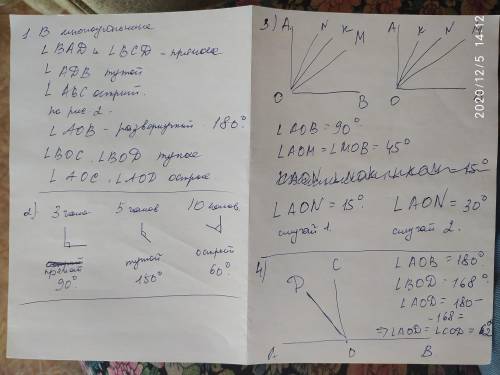 1. В многоугольнике
∠BAD и ∠BCD - прямые
∠ADB тупой
∠ABC острый.
по рис 2.
∠AOB - развернутый 180°.
∠BOC, ∠BOD тупые
∠AOC, ∠AOD острые
2) 3 часа 5 часов 10 часов
прямой тупой острый
90° 150° 60°
3) A N K M
O B
A K N M
O
∠AOB = 90°
∠AOM = ∠MOB = 45°
∠AON = 15° ∠AON = 30°
случай 1. случай 2.
4) C
D
O B
∠AOB = 180°
∠BOD = 168°
∠AOD = 180 -
- 168 =
⇒ ∠AOD = ∠COD =
2020/12/5 14:12